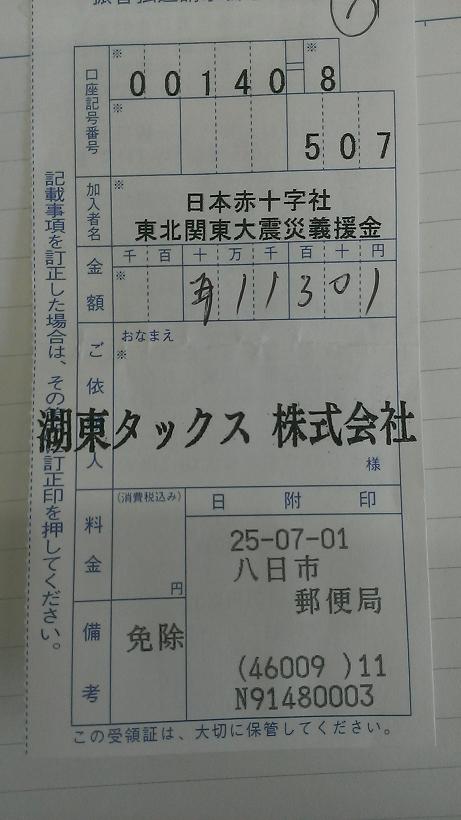 口座記号番号
※
00140
※
8
※
507
加入者名
※
日本赤十字社
東北関東大震災義援金
金額
千 百 十 万 千 百 十 円
※
¥11301
ご依頼人
おなまえ
※
湖東タックス 株式会社
様
料金
(消費税込み)
円
日 附 印
25-07-01
八日市
郵便局
(46009 )11
N91480003
備考
免除
記載事項を訂正した場合は、その箇所に訂正印を押してください。
この受領証は、大切に保管してください。